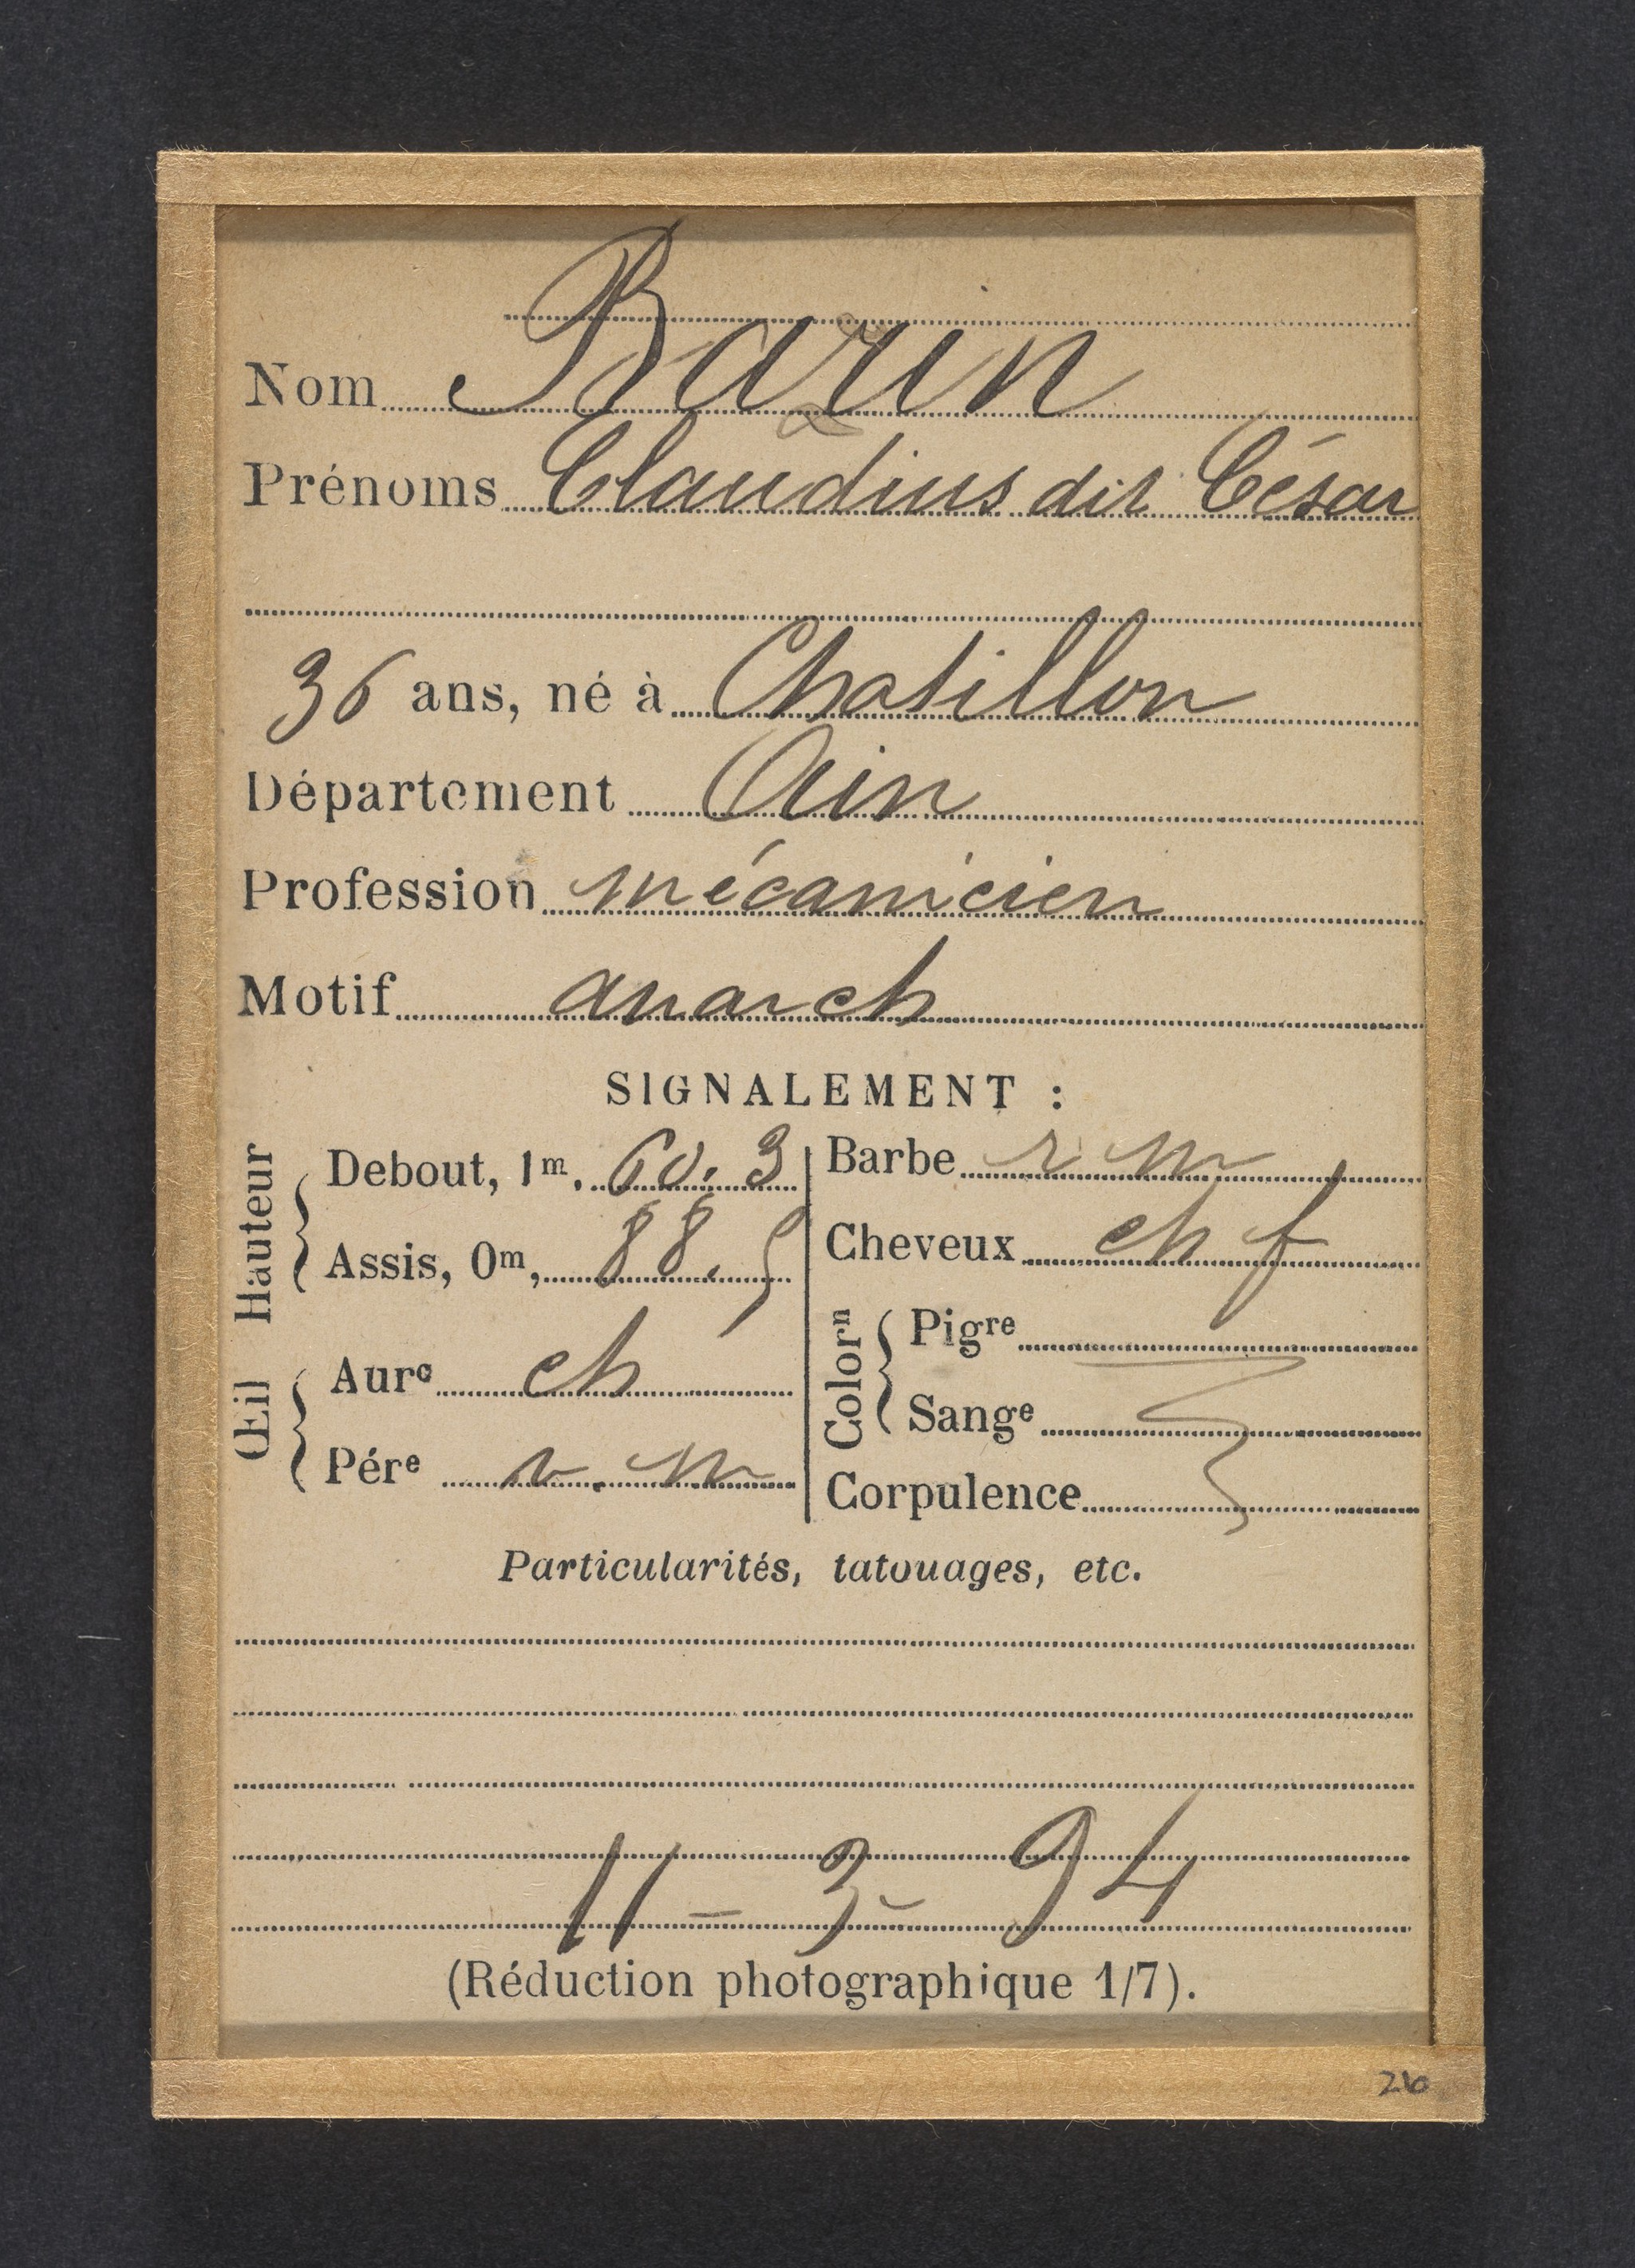 Nom Bazin
Prénoms Claudius dit César
36 ans, né à Chatillon
Département Ain
Profession mécanicien
Motif anarch
SIGNALEMENT :
Hauteur
Debout, 1m, 60.3
Assis, 0m, 88.5
Œil
Aure ch
Pére v. m
Barbe r m
Cheveux ch f
Colorn
Pigre
Sange
Corpulence
Particularités, tatouages, etc.
11 - 3 - 94
(Réduction photographique 1/7).
26